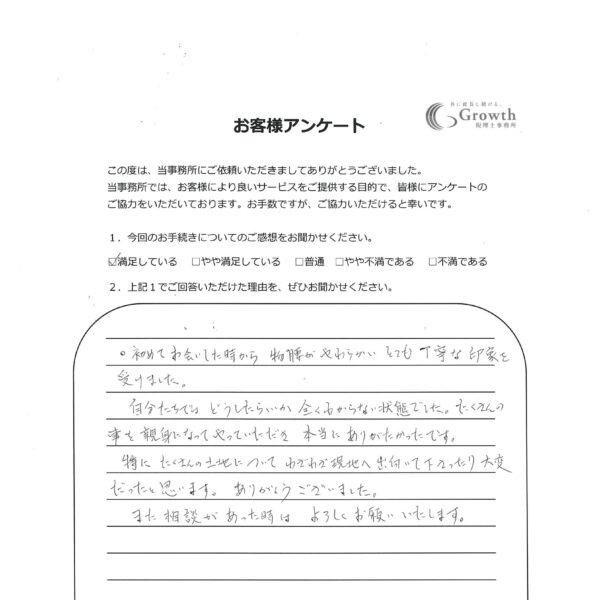 共に成長し続ける。
Growth
税理士事務所
お客様アンケート
この度は、当事務所にご依頼いただきましてありがとうございました。
当事務所では、お客様により良いサービスをご提供する目的で、皆様にアンケートの
ご協力をいただいております。お手数ですが、ご協力いただけると幸いです。
１．今回のお手続きについてのご感想をお聞かせください。
☑満足している □やや満足している □普通 □やや不満である □不満である
２．上記１でご回答いただけた理由を、ぜひお聞かせください。
○初めてお会いした時から 物腰がやわらかい とても丁寧な印象を
受けました。
自分たちでは どうしたらいいか 全くわからない状態でした。たくさんの
事を親身になってやっていただき 本当にありがたかったです。
特に たくさんの土地について わざわざ現地へ出向いて下さったり大変
だったと思います。 ありがとうございました。
また相談があった時は よろしくお願いいたします。